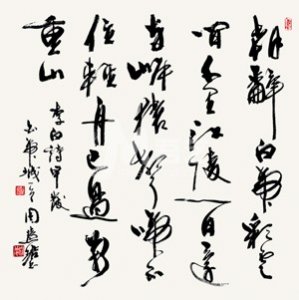 朝辭白帝彩雲
間千里江陵一日還
兩岸猿聲啼不
住輕舟已過萬
重山
李白詩早發
白帝城